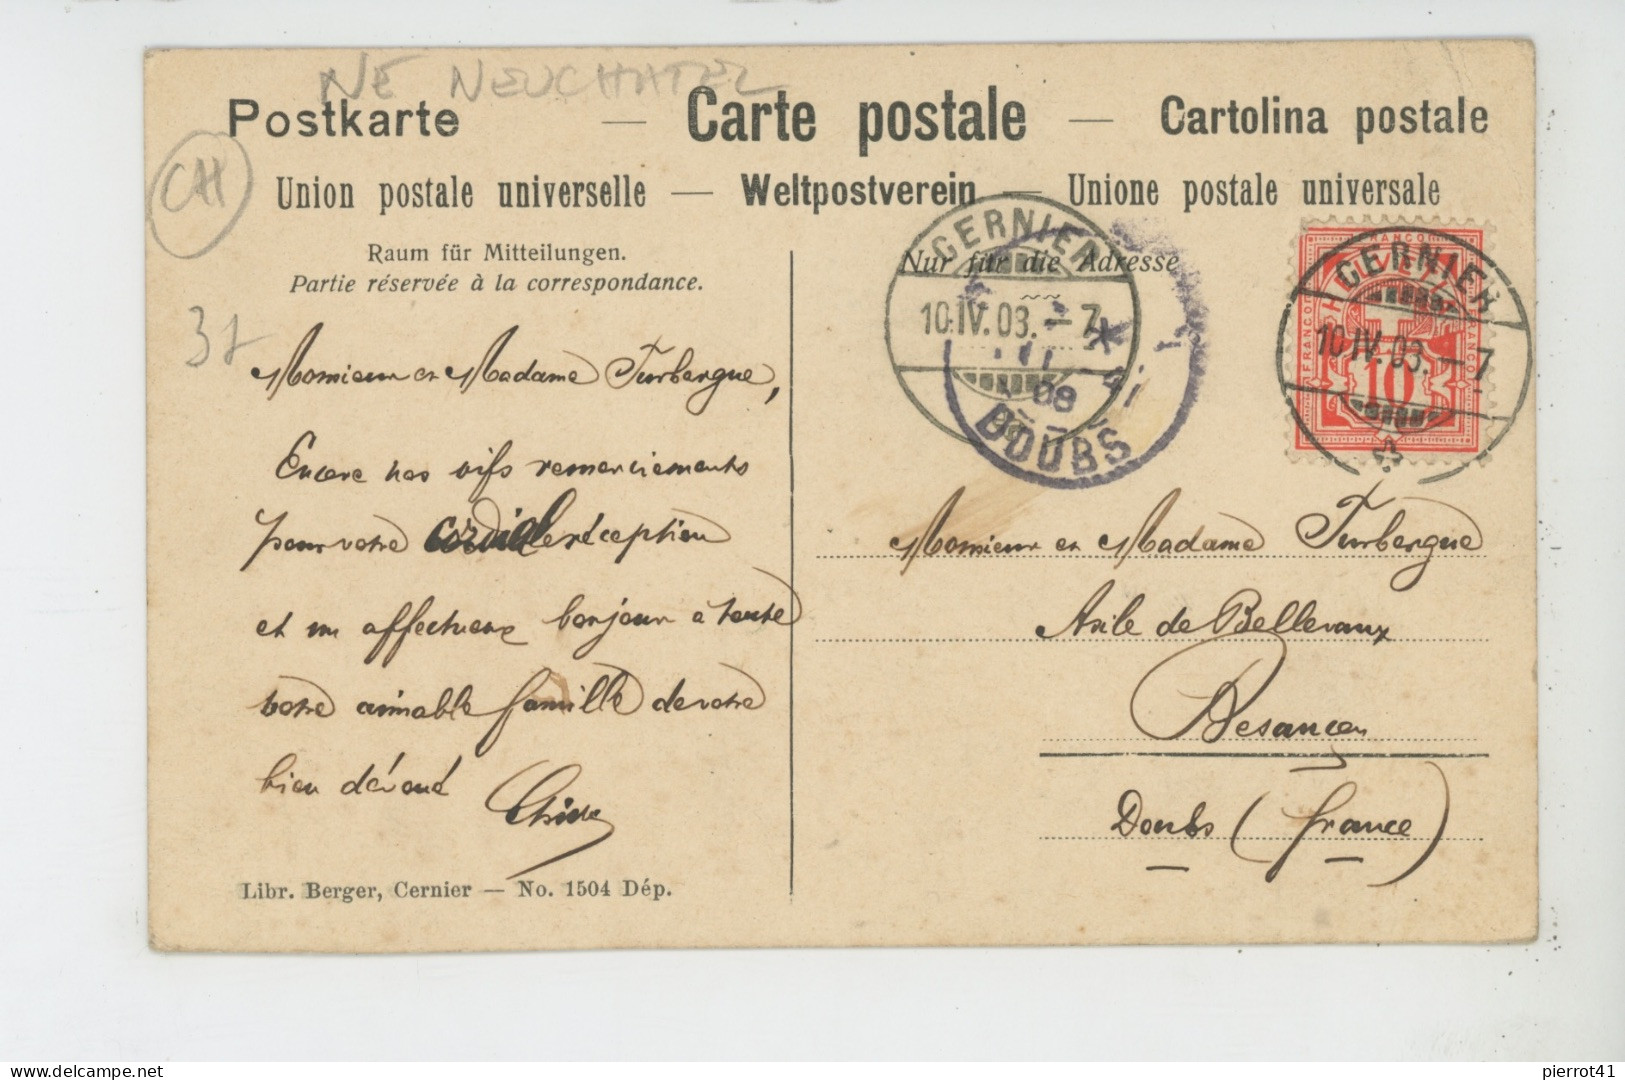 NE NEUCHATEL
Postkarte — Carte postale — Cartolina postale
CH
Union postale universelle — Weltpostverein — Unione postale universale
Raum für Mitteilungen.
Partie réservée à la correspondance.
Nur für die Adresse
CERNIER
10.IV.08.-7
CERNIER
10.IV.08.-7
FRANCO
HELVETIA
10
08
DOUBS
37
Monsieur et Madame Turbergue,
Encore nos vifs remerciements
pour votre cordiale réception
et un affectueux bonjour à toute
votre aimable famille de votre
bien dévoué
Monsieur et Madame Turbergue
Asile de Bellevaux
Besançon
Doubs (France)
Libr. Berger, Cernier — No. 1504 Dép.
pierrot41